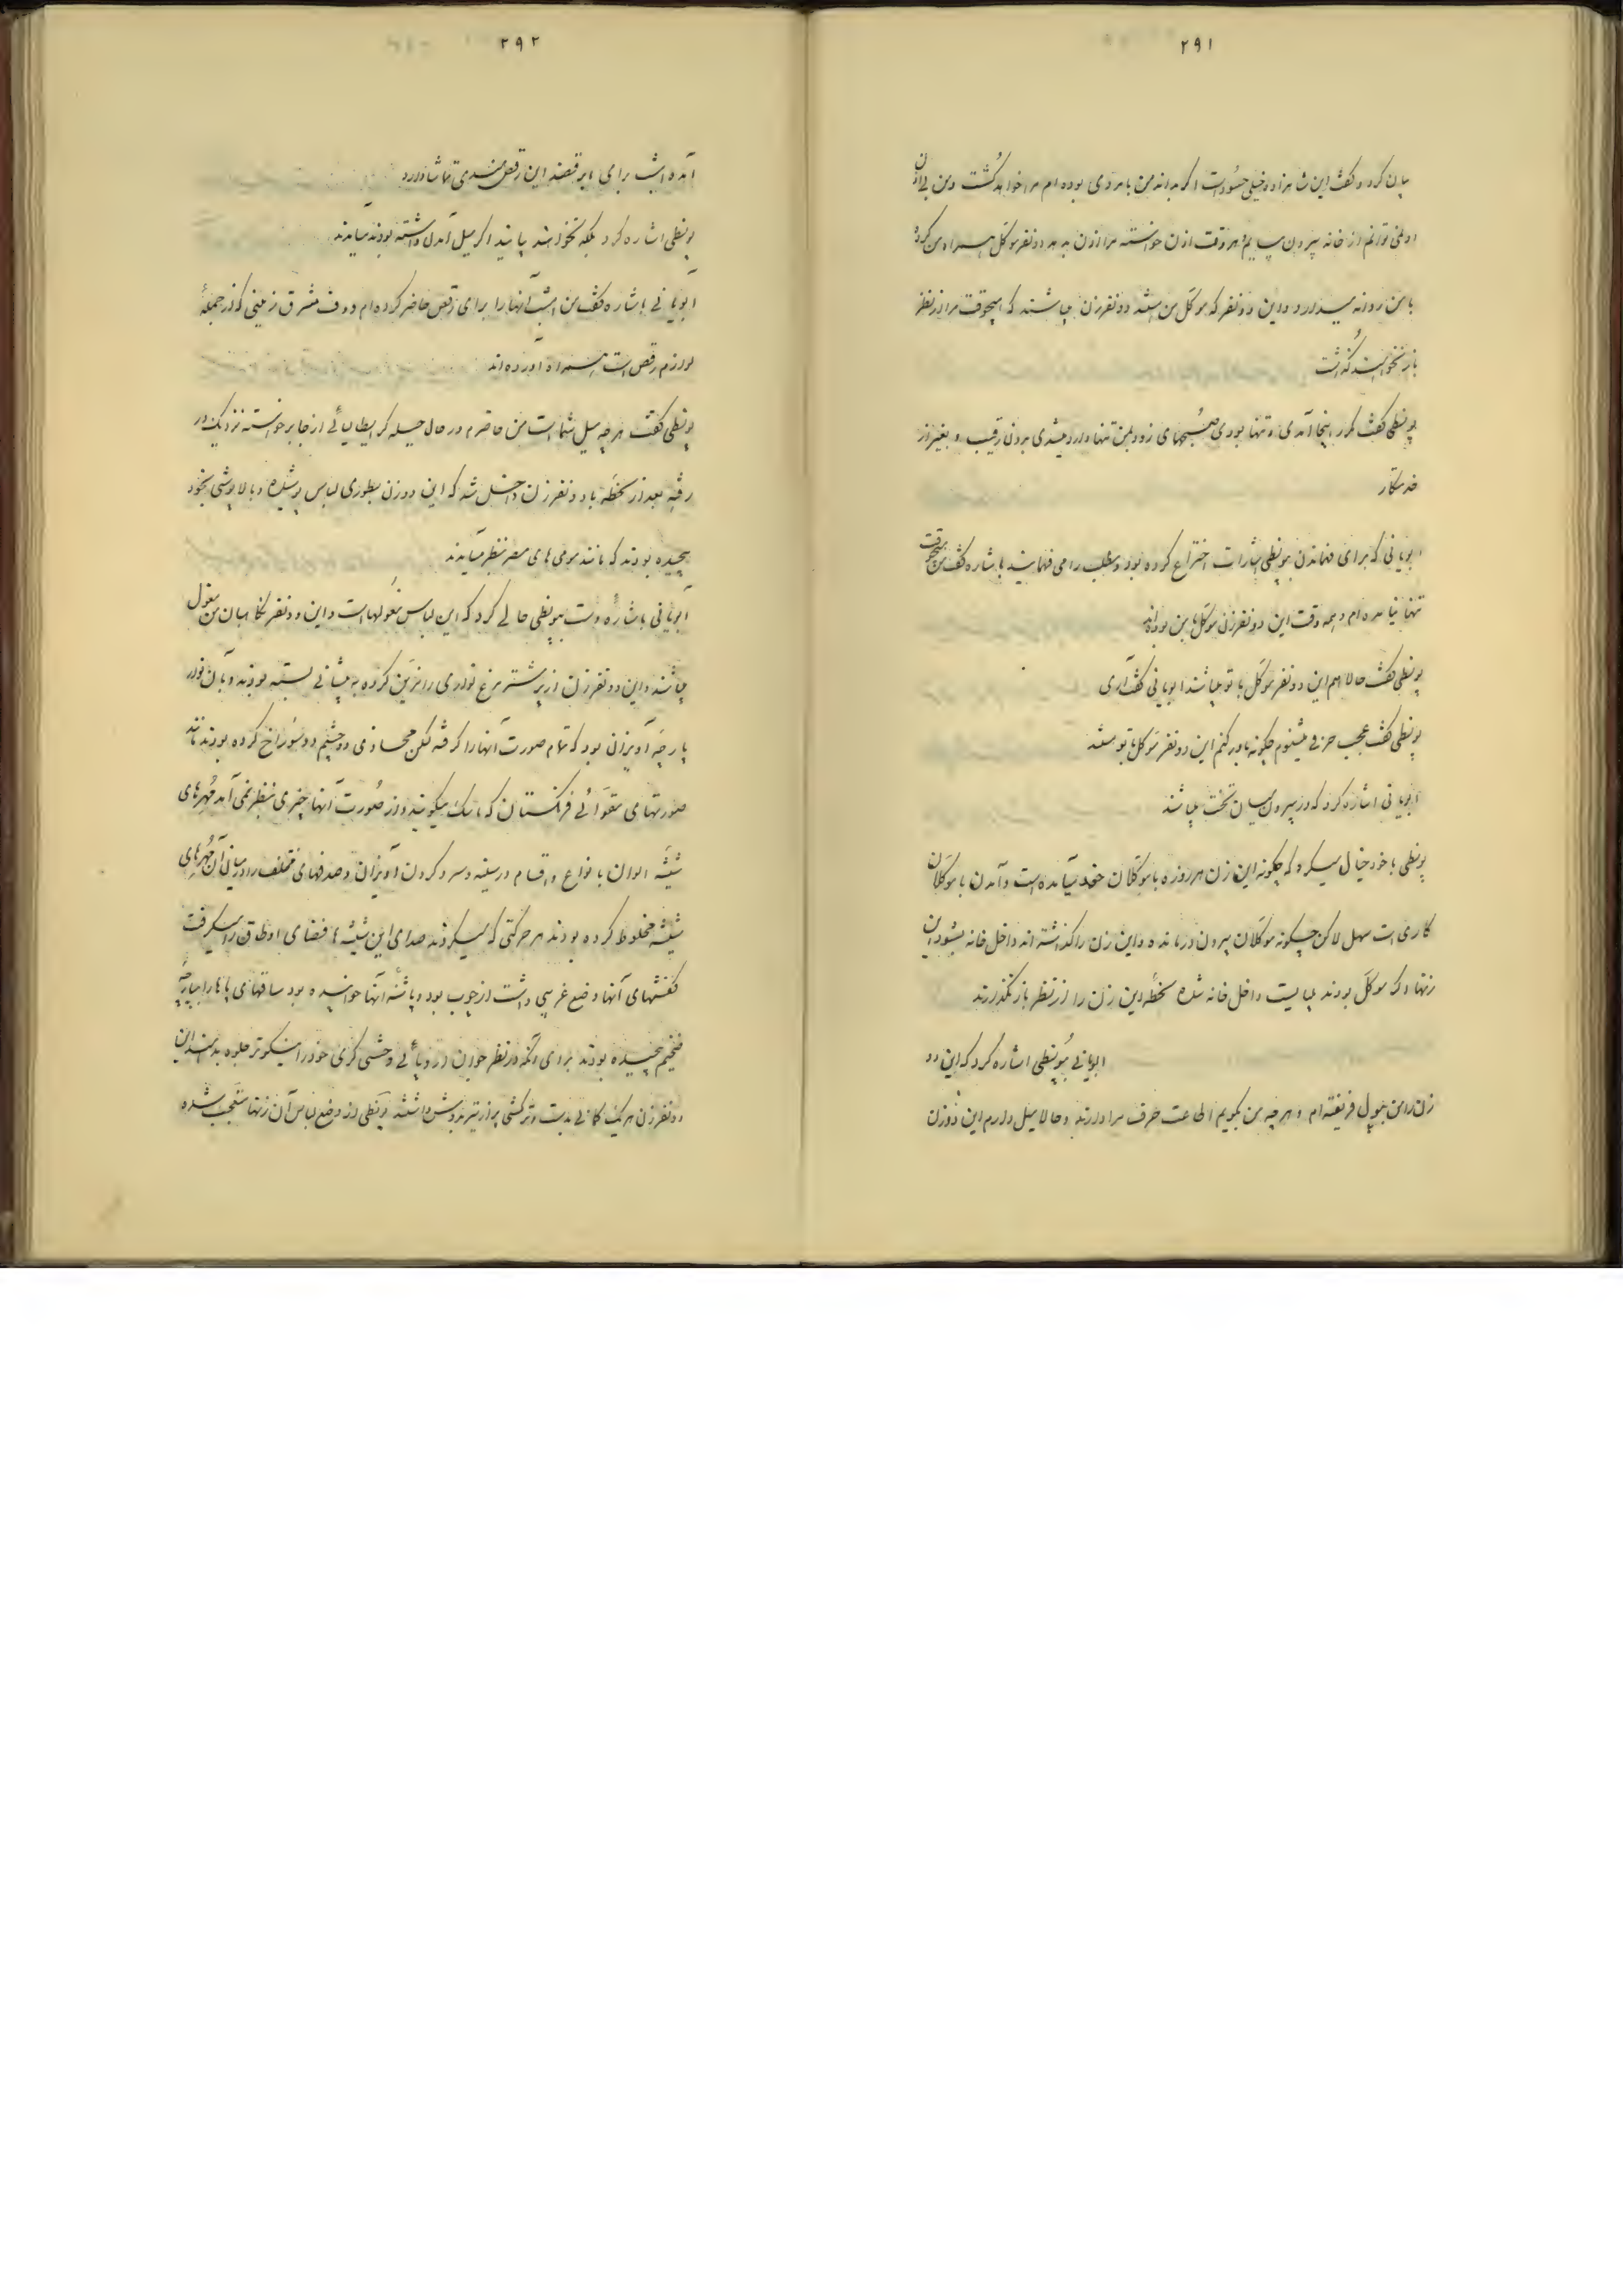 ۲۹۱
بیان کرد و گفت این شاهزاده خیلی حسود است اگر بداند من با مردی بوده‌ام مرا خواهد کشت و من بی اذن
او نمی توانم از خانه بیرون بیایم هر وقت اذن خواسته مرا اذن بدهد دو نفر موکل همراه من کرده
با من روانه میدارد و این دو نفر که موکل من هستند دو نفر زن میباشند که هیچوقت مرا از نظر
باز نخواهند گذاشت
پونطی گفت مکرر اینجا آمدی و تنها بودی صبحهای زود تنها وارد میشدی بدون رقیب و بغیر از
خدمتکار
ابویانی که برای فهماندن پونطی اشارات اختراع کرده بود و مطلب را می فهمانید باشاره گفت من هیچوقت
تنها نیامده‌ام و همه وقت این دو نفر زن موکل با من بوده‌اند
پونطی گفت حالا هم این دو نفر موکل با تو میباشند ابویانی گفت آری
پونطی گفت عجب حرفی میشنوم چگونه باور کنم این دو نفر موکل با تو هستند
ابویانی اشاره کرد که در بیرون میان تخت میباشند
پونطی با خود خیال میکرد که چگونه این زن هر روزه با موکلان خود میآمده است و آمدن با موکلان
کاری است سهل لاکن چگونه موکلان بیرون در مانده و این زن را گذاشته‌اند داخل خانه بشود این
زنها که موکل بودند میبایست داخل خانه شده لحظه این زن را از نظر باز نگذارند
ابویانی به پونطی اشاره کرد که این دو
زن را من بپول فریفته‌ام و هرچه من بگویم اطاعت حرف مرا دارند و حالا میل دارم این دو زن
۲۹۲
آمده امشب برای ما برقصند این رقص هندی تماشا دارد
پونطی اشاره کرد بلکه نخواهند بیایند اگر میل آمدن داشته بودند میامدند
ابویانی باشاره گفت من امشب آنها را برای رقص حاضر کرده‌ام و دف مشرق زمینی که از جمله
لوازم رقص است همراه آورده‌اند
پونطی گفت هرچه میل شماست من حاضرم در حال جمیله گر ایطالیائی از جا برخواسته نزدیک در
رفته بعد از لحظه با دو نفر زن داخل شد که این دو زن بطوری لباس پوشیده و بالاپوشی بخود
پیچیده بودند که مانند مومی های مصر بنظر میآمدند
ابویانی باشاره دست به پونطی حالی کرد که این لباس مغولها است و این دو نفر نگاهبان من مغول
میباشند و این دو نفر زن از پر شترمرغ نواری را مزین کرده به پیشانی بسته بودند و بآن نوار
پارچه آویزان بود که تمام صورت آنها را گرفته لکن محاذی دو چشم دو سوراخ کرده بودند مانند
صورتهای مقوائی فرنگستان که ماسک میگویند و از صورت آنها چیزی بنظر نمی آمد مهره های
شیشه الوان با نواع و اقسام در سینه و سر و گردن آویزان و صدفهای مختلف را در میان آن مهره های
شیشه مخلوط کرده بودند هر حرکتی که میکردند صدای این شیشه ها فضای اوطاق را میگرفت
کفشهای آنها وضع غریبی داشت از چوب بود و پاشنه آنها خوابیده بود ساقهای پاها را با پارچه
ضخیم پیچیده بودند برای آنکه در نظر جوان اروپائی وحشی گری خود را نیکوتر جلوه بدهند این
دو نفر زن هر یک کمانی بدست و ترکشی پر از تیر بدوش داشتند پونطی از وضع لباس آن زنها متعجب شده